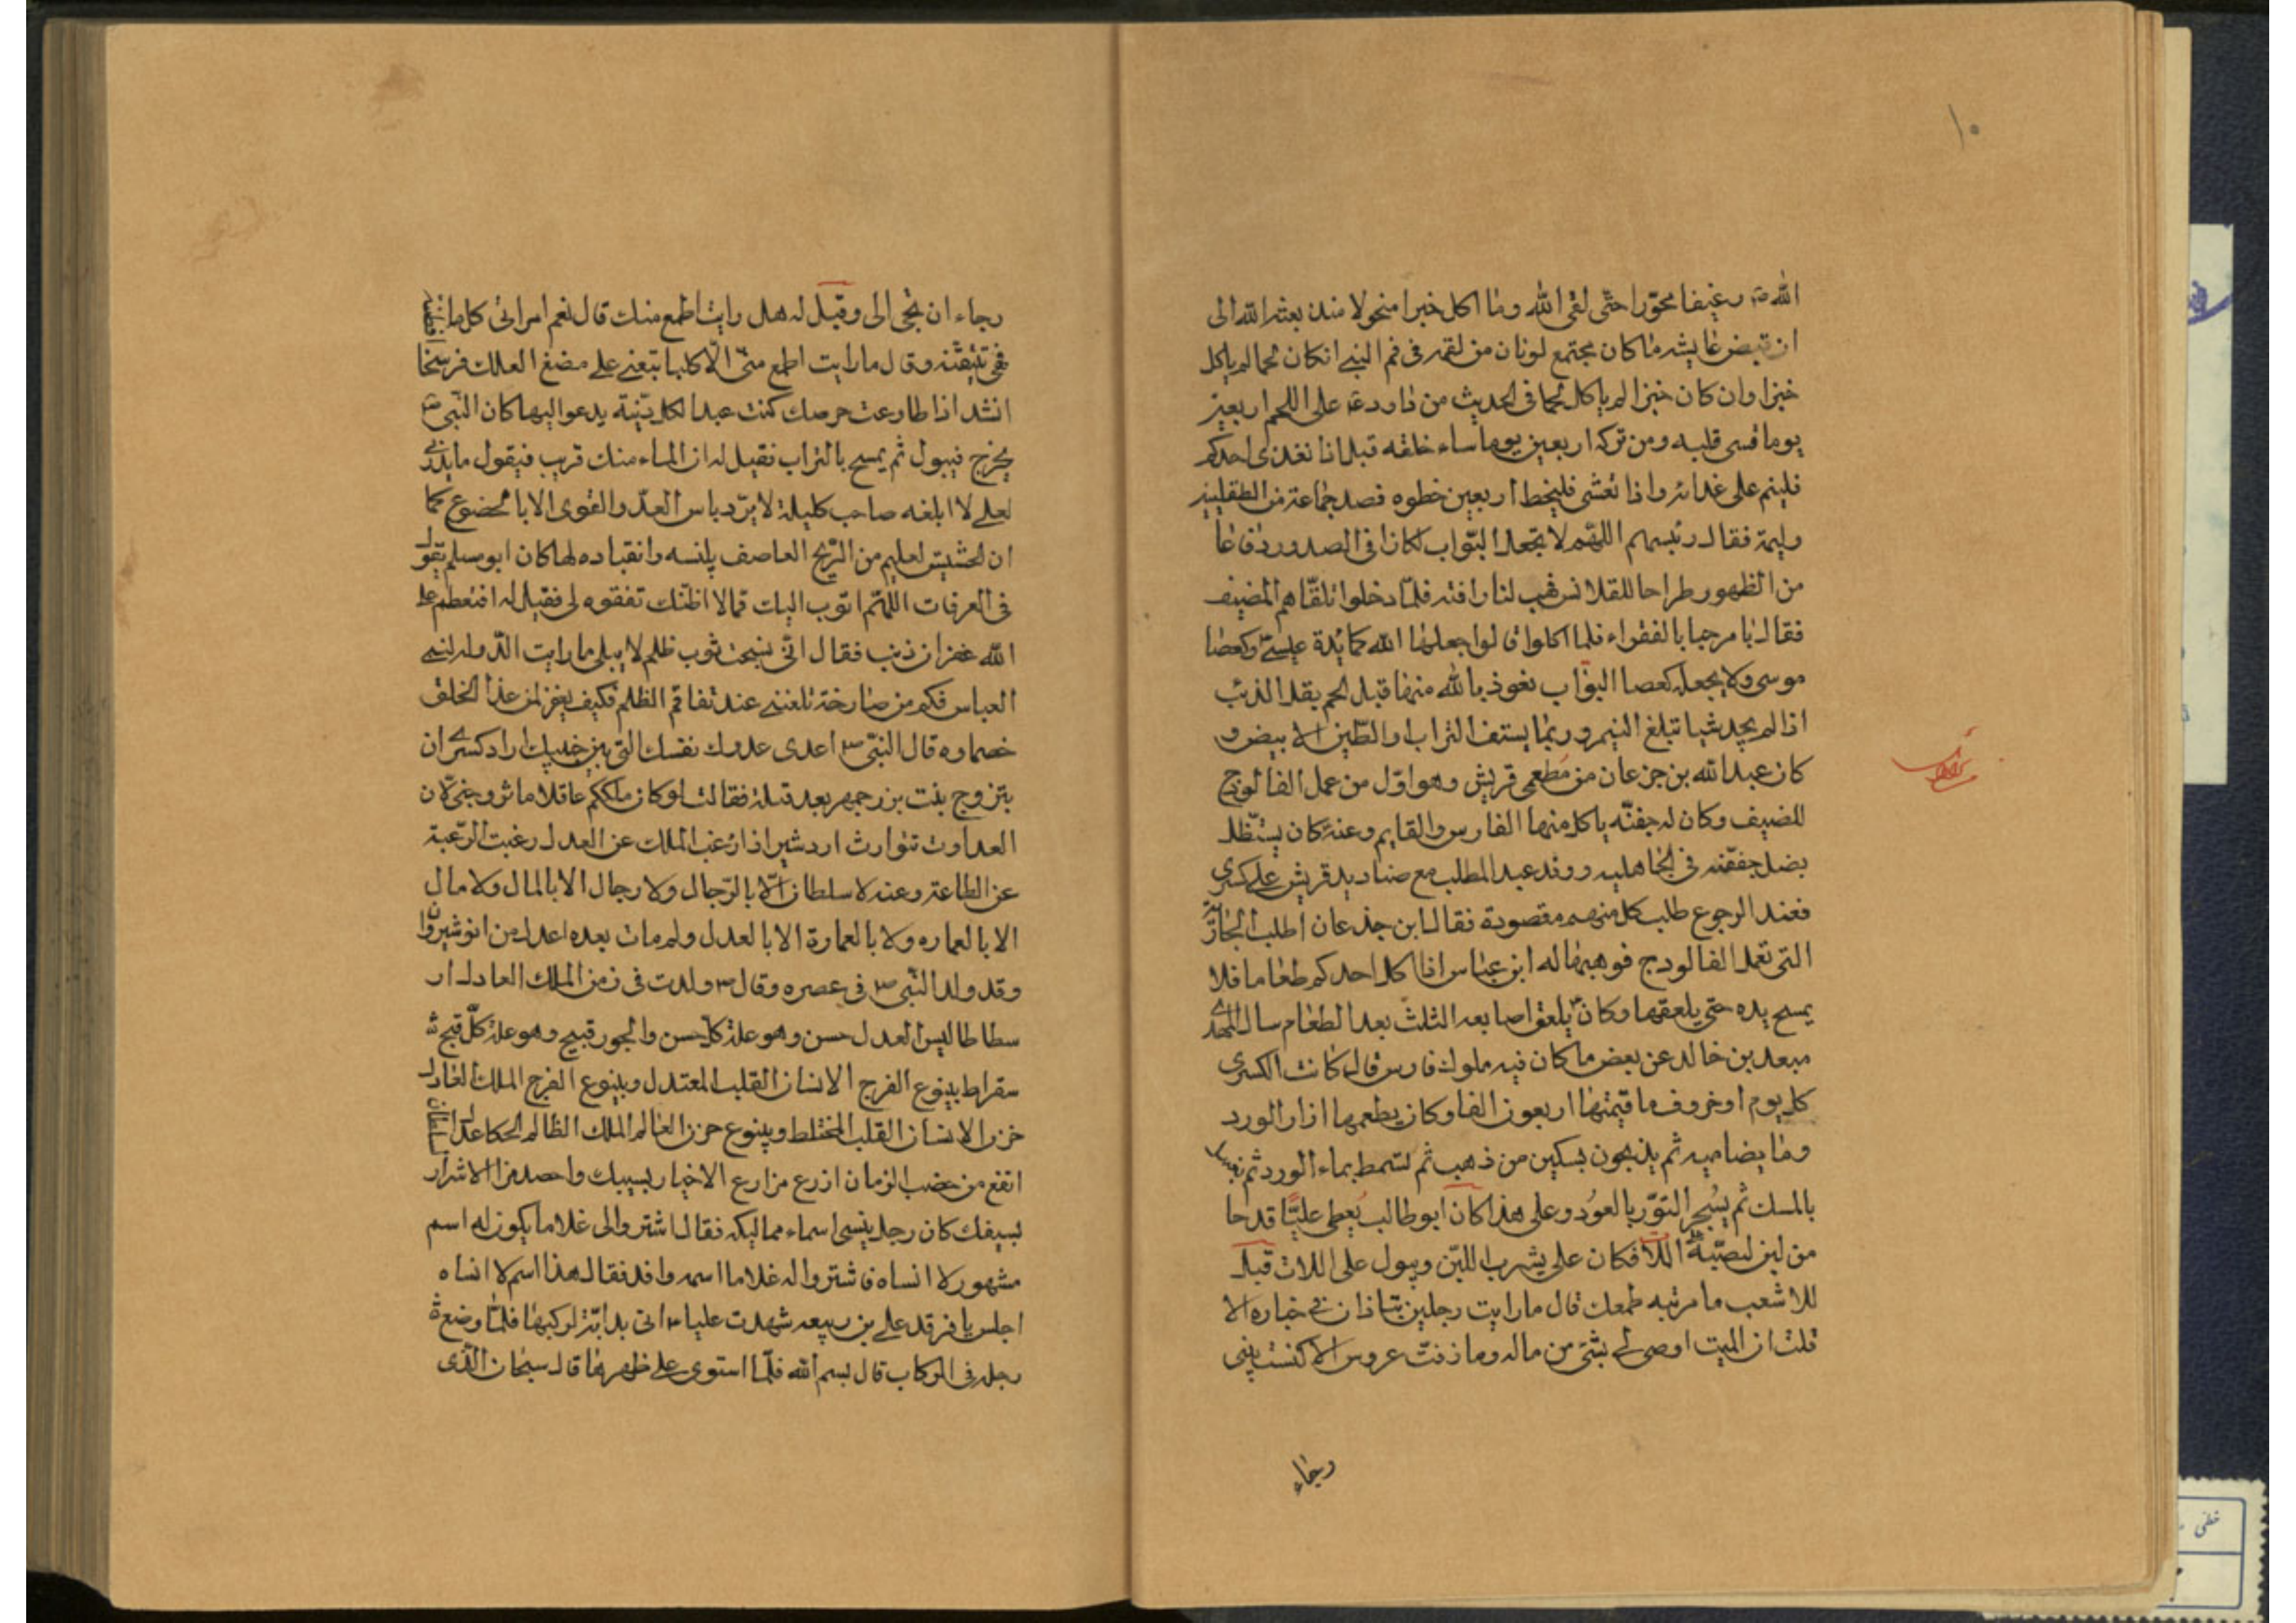 ١٠
الله ص رغيفا محوّرا حتّى لقى الله وما اكل خبزا منخولا منذ بعثه الله الى
ان قبض عايشه ما كان يجتمع لونان من لقمه فى فم النبى ان كان لحما لم ياكل
خبزا وان كان خبزا لم ياكل لحما فى الحديث من داوم على اللحم اربعين
يوما قسى قلبه ومن تركه اربعين يوما ساء خلقه قيل اذا تغدى احدكم
فلينم على غدائه واذا تعشى فليخط اربعين خطوه قصد جماعة من الطفليين
وليمة فقال رئيسهم اللهم لا تجعل البوّاب لكازا فى الصدور دفاعا
من الظهور طراحا للقلانس هب لنا رافته فلمّا دخلوا تلقّاهم المضيف
فقال يا مرحبا بالفقراء فلما اكلوا قالوا جعلها الله كمائدة عيسى وكعصا
موسى ولا يجعله كعصا البوّاب نعوذ بالله منها قيل لحم بقد الذئب
اذا لم يجد شيا تبلغ النسيم وربما يستف التراب والطين الابيض و
كان عبد الله بن جزعان من مُطعمى قريش وهو اوّل من عمل الفالوج
للضيف وكان له جفنّه ياكل منها الفارس والقايم وعنه كان يستظل
بضل جفقنه فى الجاهليه ووفد عبد المطلب مع صناديد قريش على كسرى
فعند الرجوع طلب كل منهم مقصوده فقال ابن جذعان اطلب الجارية
التى تعمل الفالودج فوهبها له ابن عباس اذا اكل احدكم طعاما فلا
يمسح يده حتى يلعقها وكان يلعق اصابعه الثلث بعد الطعام سال المهدى
معبد بن خالد عن بعض ما كان فيه ملوك فارس قال كانت لكسرى
كل يوم اوخروف ما قيمتها اربعون الفا وكان يطعمها ازار الورد
وما يضاهيه ثم يذبحون بسكين من ذهب ثم تسمط بماء الورد ثم
بالمسك ثم يُسجر التنوّر بالعُود وعلى هذا كان ابو طالب يُعطى عليّا قدحا
من لبن ليصبّه على اللاّت فكان على يشرب اللبن ويبول على اللات قيل
للاشعب ما مرتبه طمعك قال ما رايت رجلين يتناذان فى خباره الا
قلت ان الميت اوصى لى بشئ من ماله وما زفت عروس الا كنست بيتى
رجاء
رجاء ان تجئ الى وقيل له هل رايت اطمع منك قال نعم امراتى كل ما
فهى تتيقّنه وقال ما رايت اطمع منّى الّا كلبا تبعنى على مضغ العلك فرسخا
انشد اذا طاوعت حرصك كنت عبدا لكل دنّية يدعو اليها كان النّبى ص
يخرج فيبول ثم يمسح بالتراب فقيل له ان الماء منك قريب فيقول ما يدرى
لعلى لا ابلغه صاحب كليلة لا يردّ باس العدّو القوى الا بالخضوع كما
ان الحشيش لعليم من الرّيح العاصف بلينه وانقياده لها كان ابو مسلم يقول
فى العرفات اللهم اتوب اليك ممالا اظنك تغفره لى فقيل له افتعظم على
الله غفران ذنب فقال انّى نسجت ثوب ظلم لا يبلى ما رايت الدّوله لبنى
العباس فكم من صارخة تلعننى عند تفاقم الظلم فكيف يغفر لمن هذا الخلق
خصماوه قال النبىّ ص اعدى عدوك نفسك التى بين جنبيك اراد كسرى ان
يتزوج بنت بزرجمهر بعد قتله فقالت لو كان ملككم عاقلا ما تزوجنى لان
العداوت تتوارث اردشير اذا رغب الملك عن العدل رغبت الرّعية
عن الطاعة وعنه لا سلطان الّا بالرّجال ولا رجال الا بالمال ولا مال
الا بالعماره ولا بالعمارة الا بالعدل ولم مات بعده اعدل من انوشيروان
وقد ولد النّبى ص فى عصره وقال ص ولدت فى زمن الملك العادل ار
سطاطاليس العدل حسن وهو علة كلّ حسن والجور قبيح وهو علة كلّ قبح
سقراط ينبوع الفرح الانسان القلب المعتدل وينبوع الفرح الملك العادل
حزن الانسان القلب المختلط وينبوع حزن العالم الملك الظالم الحكما عدل السلطان
انفع من خضب الزمان ازرع مزارع الاخيار بسيبك واحصد من الاشرار
بسيفك كان رجل ينسى اسماء مماليكه فقال اشتروا لى غلاما يكون له اسم
مشهور لا انساه فاشتروا له غلاما اسمه وافد فقال هذا اسم لا انساه
اجلس يا فرقد على بن ربيعه شهدت عليا ع اتى بدابّة ليركبها فلمّا وضع
رجله فى الركاب قال بسم الله فلمّا استوى على ظهرها قال سبحان الّذى